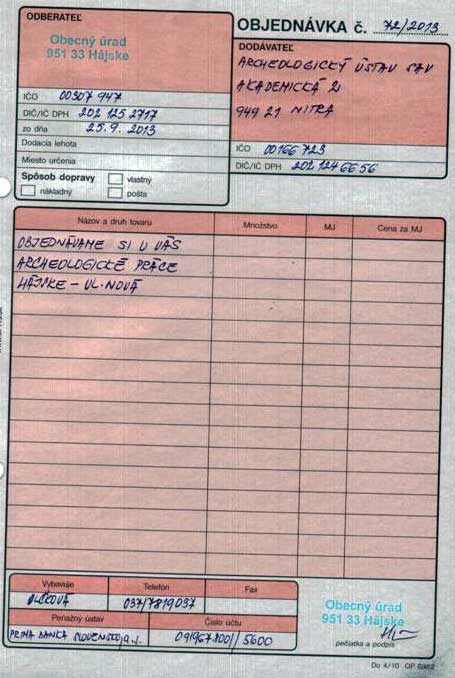 ODBERATEĽ
Obecný úrad
951 33 Hájske
IČO 00307 947
DIČ/IČ DPH 202 125 2717
zo dňa 25.9.2013
Dodacia lehota
Miesto určenia
Spôsob dopravy
vlastný
nákladný
pošta
OBJEDNÁVKA č. 72/2013
DODÁVATEĽ
ARCHEOLOGICKÝ ÚSTAV SAV
AKADEMICKÁ 2
949 21 NITRA
IČO 00166 723
DIČ/IČ DPH 202 124 6656
Názov a druh tovaru Množstvo MJ Cena za MJ
OBJEDNÁVAME SI U VÁS
ARCHEOLOGICKÉ PRÁCE
HÁJSKE - UL. NOVÁ
Vybavuje Telefón Fax
037/7819037
Peňažný ústav Číslo účtu
PRIMA BANKA SLOVENSKO, a.s. 5600
Obecný úrad
951 33 Hájske
pečiatka a podpis
Du 4/10 OP 6982